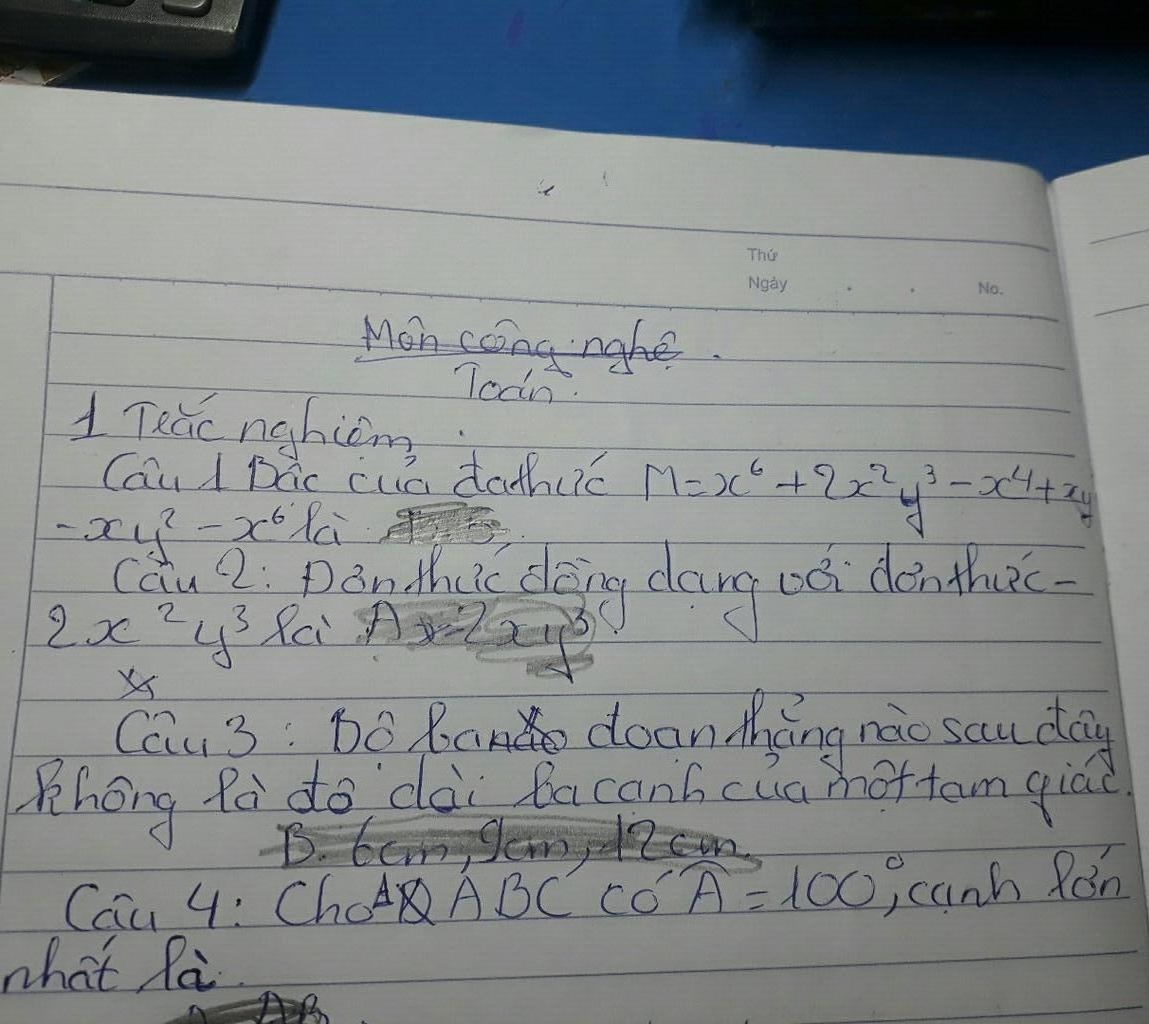 Thứ
Ngày . . No.
Môn công nghệ.
Toán.
1 Trắc nghiệm
Câu 1 Bậc của đathức M=x⁶+2x²y³-x⁴+xy
-xy²-x⁶ là
Câu 2: Đơn thức đồng dạng với đơn thức-
2x²y³ là A 2xy³
Câu 3: Bộ ba đoạn thẳng nào sau đây
không là độ dài ba cạnh của một tam giác.
B. 6cm, 9cm, 12cm.
Câu 4: Cho ABC có Â=100°, cạnh lớn
nhất là.
AB